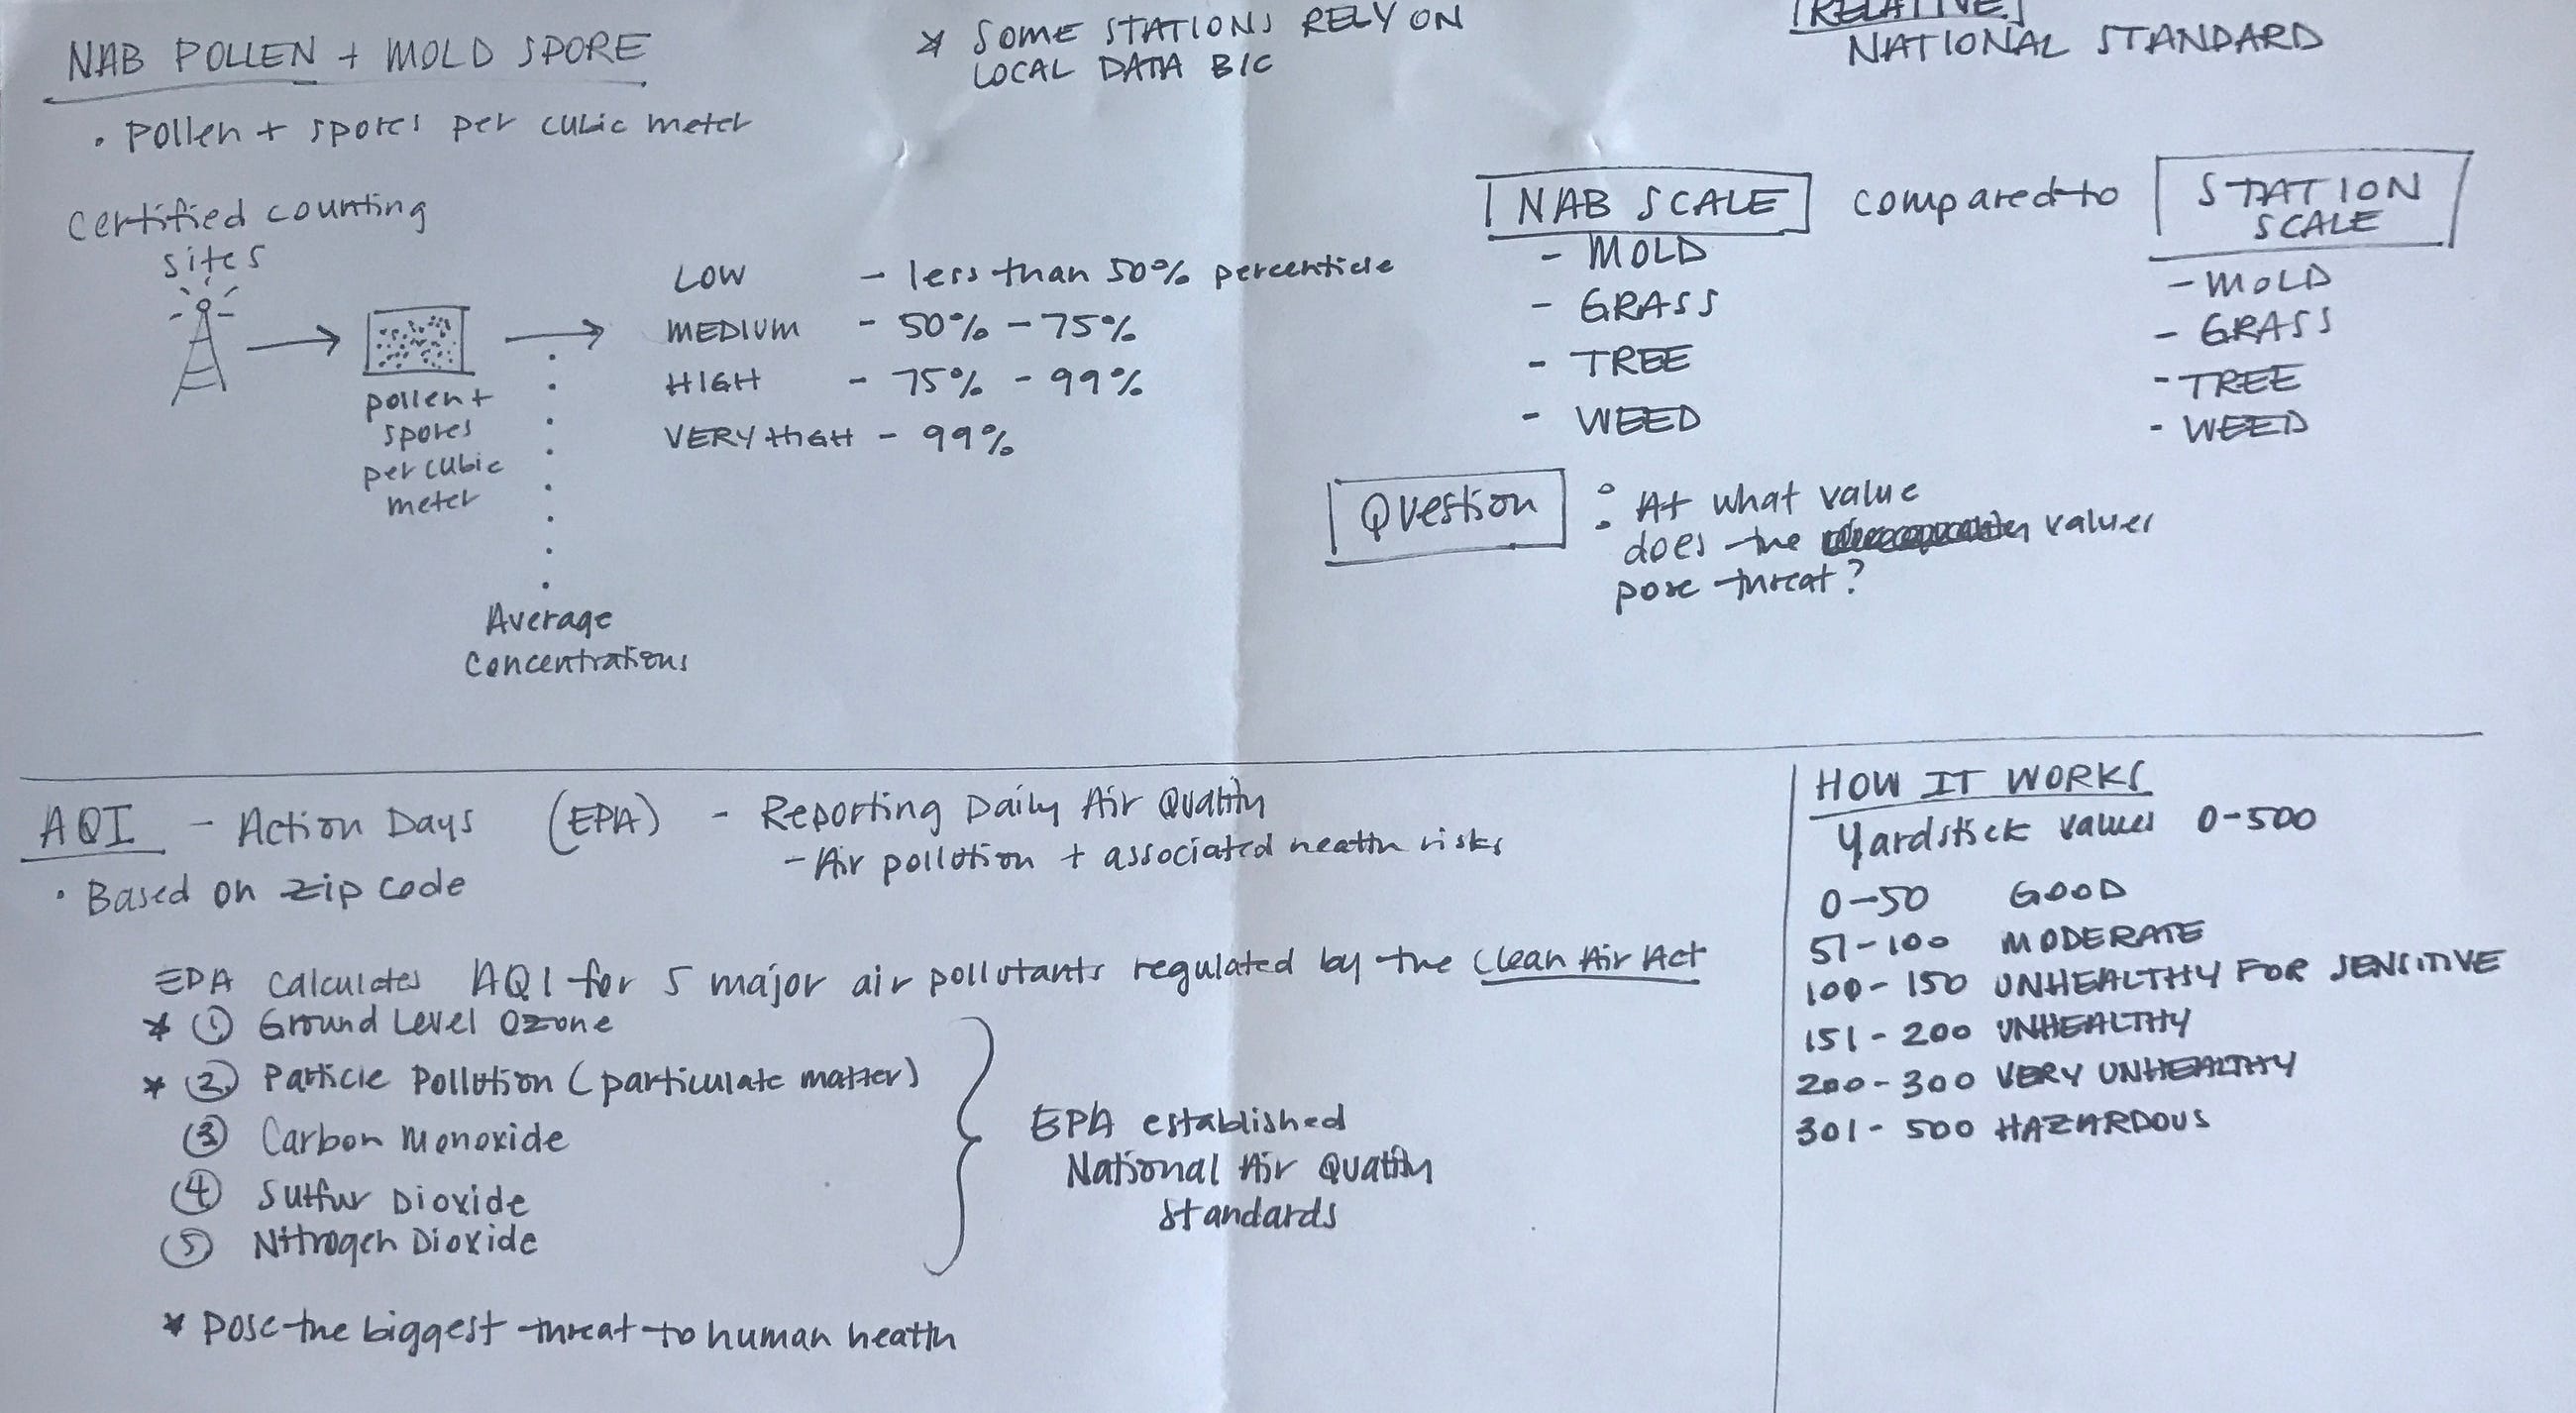 NAB POLLEN + MOLD SPORE
• Pollen + spores per cubic meter
* SOME STATIONS RELY ON
LOCAL DATA B/C
RELATIVE
NATIONAL STANDARD
Certified counting
sites
pollen +
spores
per cubic
meter
Average
Concentrations
LOW - less than 50% percenticle
MEDIUM - 50% - 75%
HIGH - 75% - 99%
VERY HIGH - 99%
NAB SCALE compared to STATION
SCALE
- MOLD
- GRASS
- TREE
- WEED
- MOLD
- GRASS
- TREE
- WEED
Question : At what value
does the values
pose threat?
AQI - Action Days (EPA) - Reporting Daily Air Quality
- Air pollution + associated health risks
• Based on zip code
EPA calculates AQI for 5 major air pollutants regulated by the Clean Air Act
* ① Ground Level Ozone
* ② Particle Pollution (particulate matter)
③ Carbon Monoxide
④ Sulfur Dioxide
⑤ Nitrogen Dioxide
EPA established
National Air Quality
Standards
* Pose the biggest threat to human health
HOW IT WORKS
Yardstick values 0-500
0-50 GOOD
51-100 MODERATE
100-150 UNHEALTHY FOR SENSITIVE
151-200 UNHEALTHY
200-300 VERY UNHEALTHY
301-500 HAZARDOUS